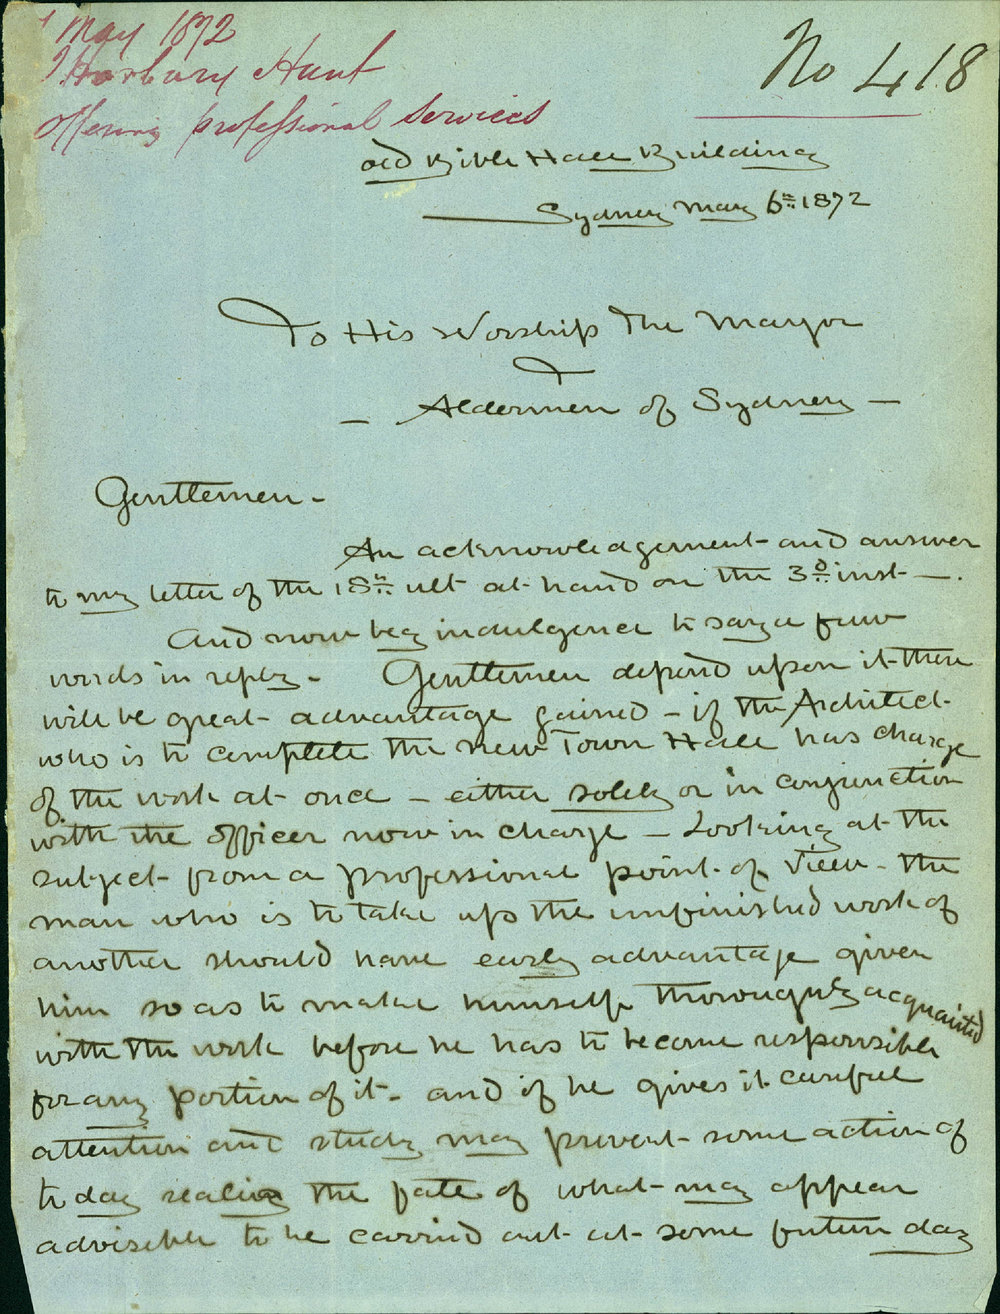 7 May 1872
J Horbury Hunt
Offering professional Services
No 418
old Bible Hall Building
Sydney May 6th 1872
To His Worship The Mayor
Aldermen of Sydney
Gentlemen -
An acknowledgement and answer
to my letter of the 18th ult at hand on the 3d inst -.
And now beg indulgence to say a few
words in reply - Gentlemen depend upon it there
will be great advantage gained - if the Architect
who is to complete the new Town Hall has charge
of the work at once - either solely or in conjunction
with the officer now in charge - Looking at the
subject from a professional point of View - the
man who is to take up the unfinished work of
another should have early advantage given
him so as to make himself thoroughly acquainted
with the work before he has to become responsible
for any portion of it - and if he gives it careful
attention and study may prevent some action of
to day sealing the fate of what may appear
advisable to be carried out at some future day